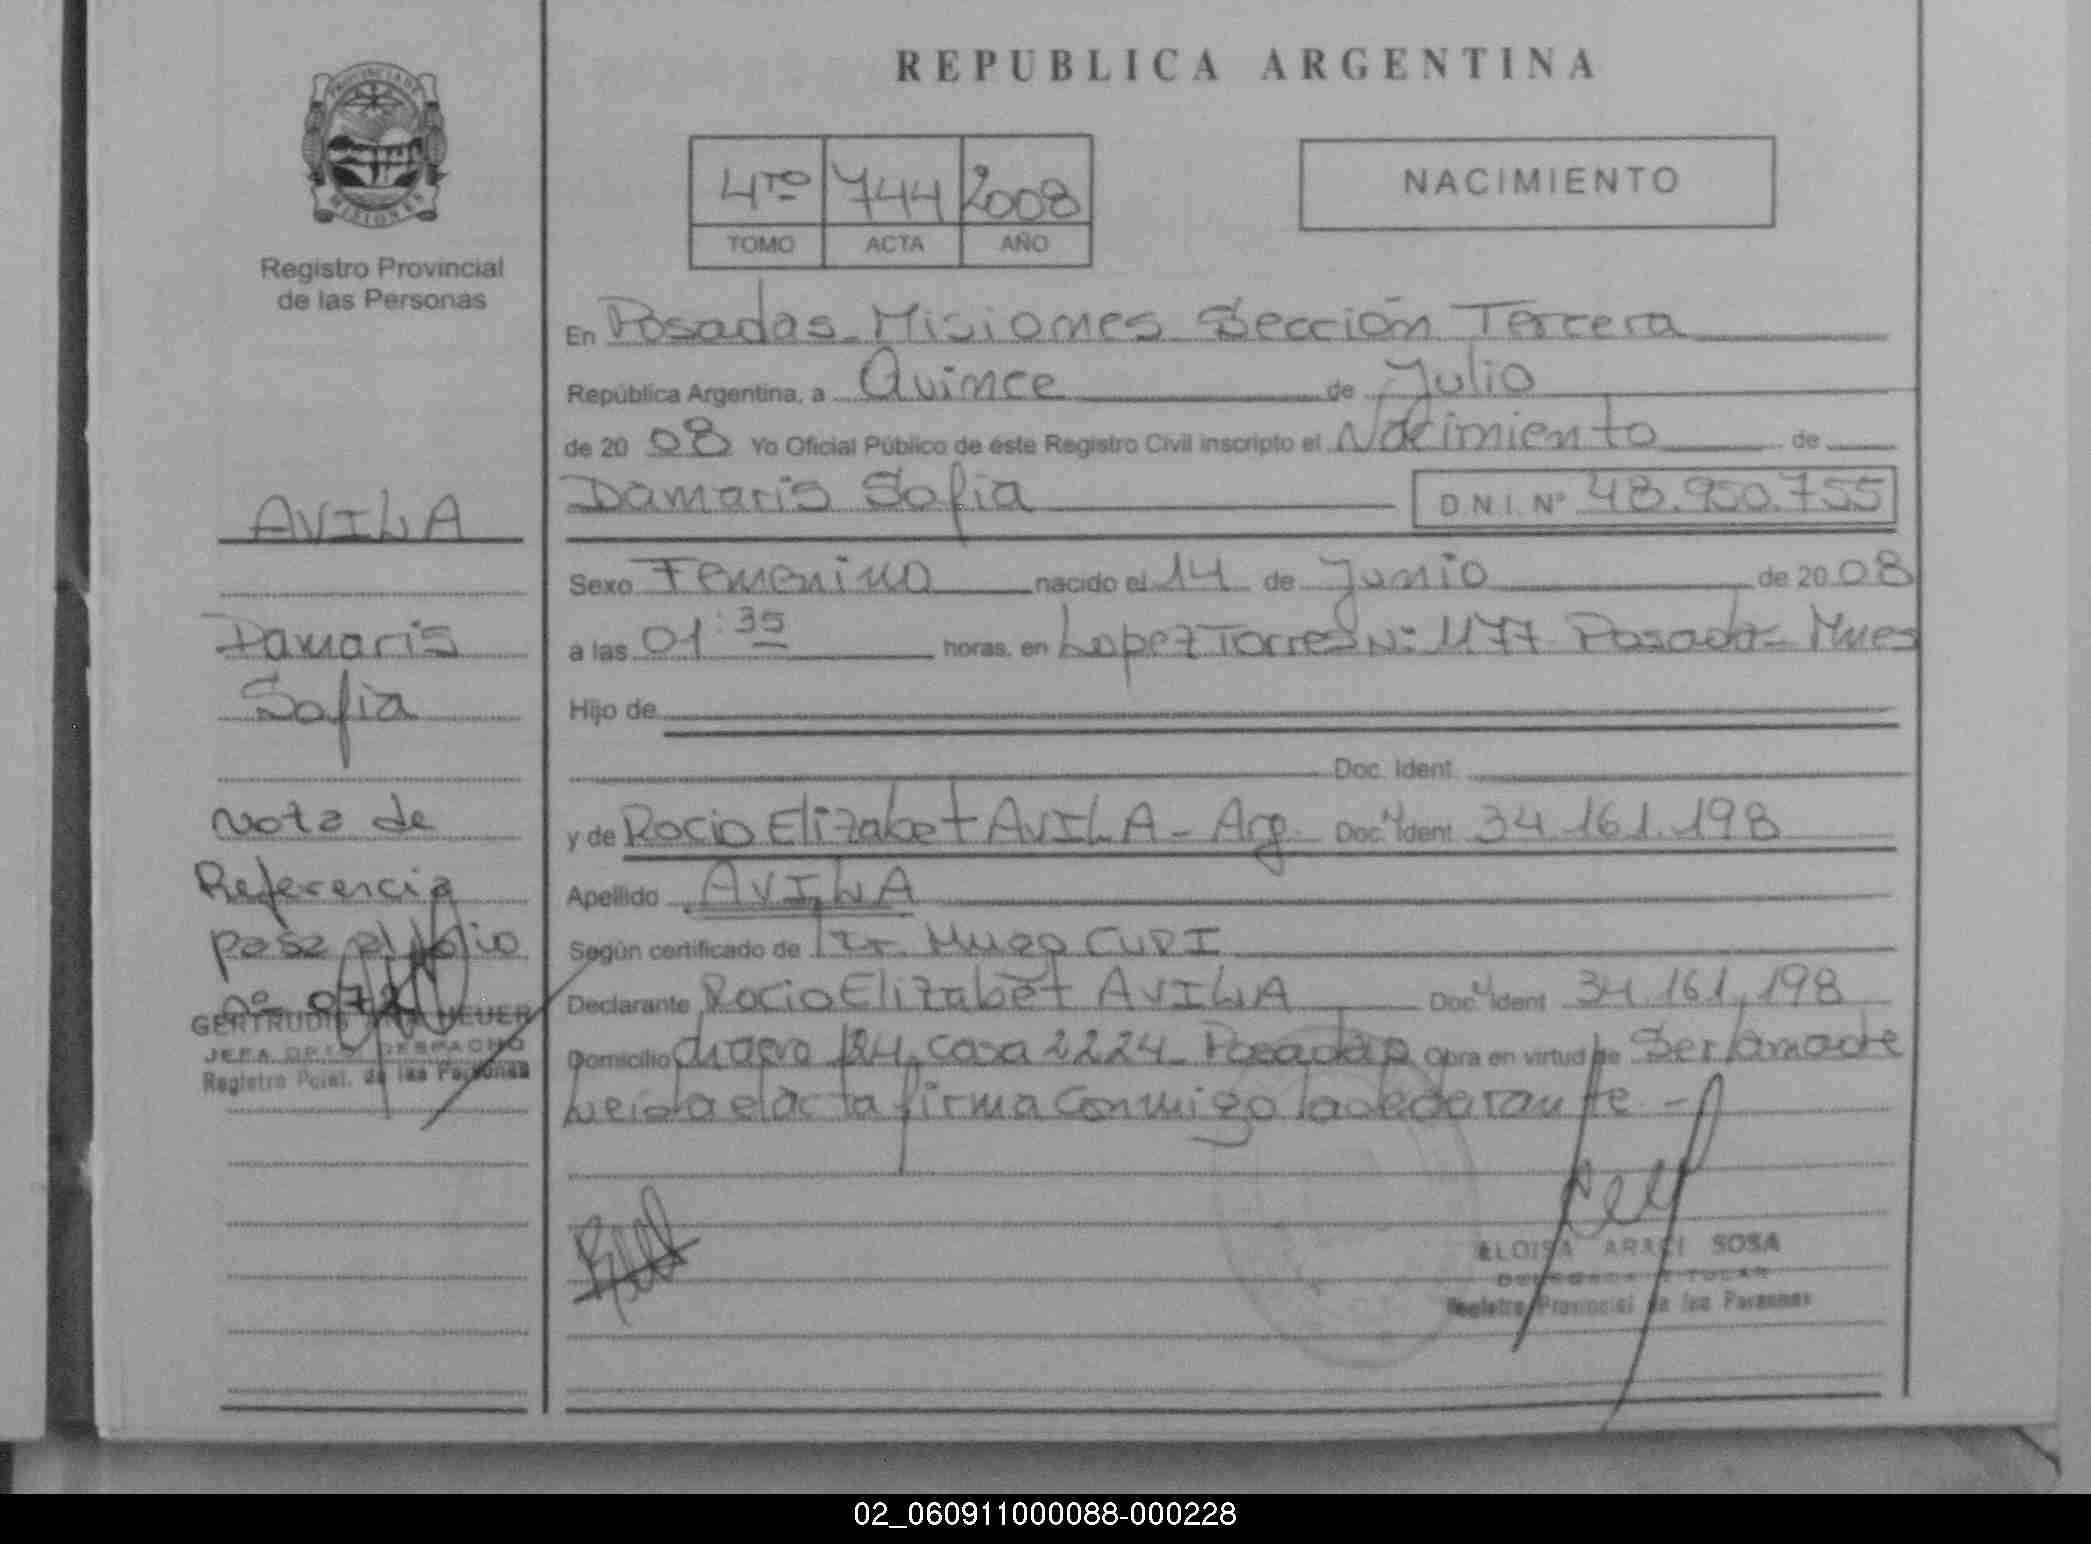 REPUBLICA ARGENTINA
PROVINCIA DE
MISIONES
Registro Provincial
de las Personas
4TO 744 2008
TOMO ACTA AÑO
NACIMIENTO
En Posadas Misiones Sección Tercera
República Argentina, a Quince de Julio
de 2008 Yo Oficial Público de éste Registro Civil inscripto el Nacimiento de
Damaris Sofia D.N.I. Nº 48.950.755
Sexo Femenino nacido el 14 de Junio de 2008
a las 01:35 horas, en Lopez Torres Nº 1177 Posadas Mnes
Hijo de
Doc. Ident.
y de Rocio Elizabet AVILA - Arg. Doc. Ident. 34.161.198
Apellido AVILA
Según certificado de Dr. Hugo CUDI
Declarante Rocio Elizabet AVILA Doc. Ident 34.161.198
Domicilio chacra 124, casa 2224 Posadas Obra en virtud de Ser la madre
Leida el acta firma conmigo la declarante. -
ELOISA ARACI SOSA
DELEGADA TITULAR
Registro Provincial de las Personas
AVILA
Damaris
Sofia
Nota de
Referencia
pasa al folio
nº
GERTRUDIS HEUER
JEFA DESPACHO
Registro Pcial. de las Personas
02_060911000088-000228